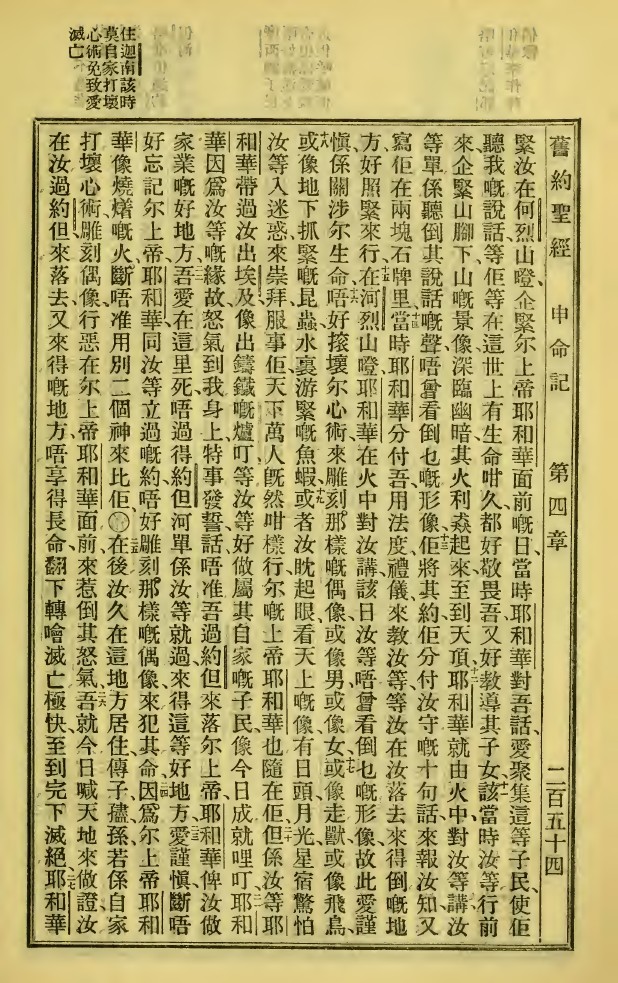 舊約聖經 申命記 第四章 二百五十四
住迦南該時
莫自家打壞
心術免致愛
滅亡
緊汝在何烈山嶝企緊尔上帝耶和華面前嘅日當時耶和華對吾話愛聚集這等子民使佢
聽我嘅說話等佢等在這世上有生命咁久都好敬畏吾又好教導其子女該當時汝等行前
來企緊山腳下山嘅景像深臨幽暗其火利焱起來至到天頂十二耶和華就由火中對汝等講汝
等單係聽倒其說話嘅聲唔曾看倒乜嘅形像十三佢將其約佢分付汝守嘅十句話來報汝知又
寫佢在兩塊石牌里十四當時耶和華分付吾用法度禮儀來教汝等等汝在汝落去來得倒嘅地
方好照緊來行十五在河烈山嶝耶和華在火中對汝講該日汝等唔曾看倒乜嘅形像故此愛謹
慎十六係關涉尔生命唔好㨃壞尔心術來雕刻那樣嘅偶像或像男或像女十七或像走獸或像飛鳥
十八或像地下抓緊嘅昆蟲水裏游緊嘅魚蝦十九或者汝眈起眼看天上嘅像有日頭月光星宿驚怕
汝等入迷惑來崇拜服事佢天下萬人旣然咁樣行尔嘅上帝耶和華也隨在佢二十但係汝等耶
和華帶過汝出埃及像出鑄鐵嘅爐叮等汝等好做屬其自家嘅子民像今日成就哩叮二一耶和
華因爲汝等嘅緣故怒氣到我身上特事發誓話唔准吾過約但來落尔上帝耶和華俾汝做
家業嘅好地方二二吾愛在這里死唔過得約但河單係汝等就過來得這等好地方二三愛謹愼斷唔
好忘記尔上帝耶和華同汝等立過嘅約唔好雕刻那樣嘅偶像來犯其命二四因爲尔上帝耶和
華像燒燼嘅火斷唔准用別二個神來比佢二五在後汝久在這地方居住傳子𢽤孫若係自家
打壞心術雕刻偶像行惡在尔上帝耶和華面前來惹倒其怒氣二六吾就今日喊天地來做證汝
在汝過約但來落去又來得嘅地方唔享得長命翻下轉噲滅亡極快至到完下滅絕二七耶和華